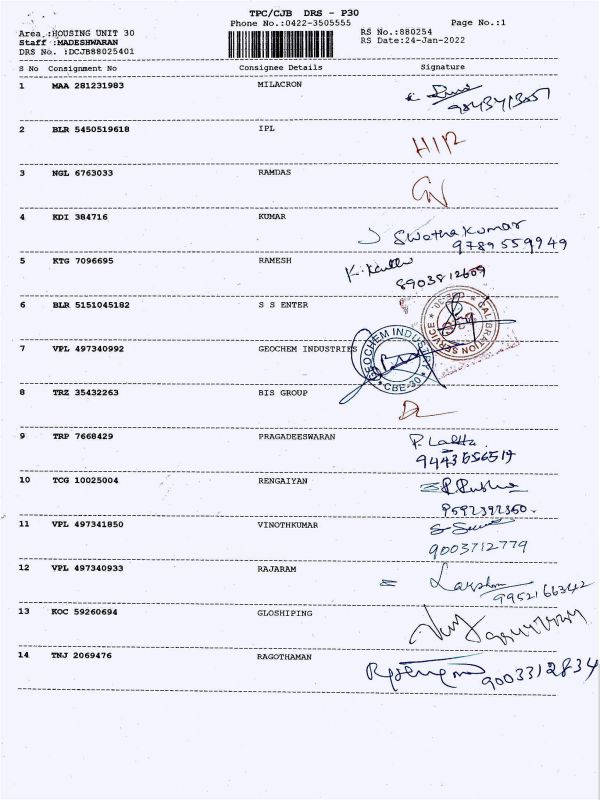 TPC/CJB DRS - P30
Phone No.:0422-3505555 Page No.:1
Area :HOUSING UNIT 30 RS No.:880254
Staff :MADESHWARAN RS Date:24-Jan-2022
DRS No. :DCJB88025401
S No Consignment No Consignee Details Signature
1 MAA 281231983 MILACRON
2 BLR 5450519618 IPL
3 NGL 6763033 RAMDAS
4 KDI 384716 KUMAR J Swetha Kumar
9789559949
5 KTG 7096695 RAMESH
8903812609
6 BLR 5151045182 S S ENTER
CALIBRATION SERVICE
7 VPL 497340992 GEOCHEM INDUSTRIES
GEOCHEM INDUSTRIES
CBE-30
8 TRZ 35432263 BIS GROUP
9 TRP 7668429 PRAGADEESWARAN P. Lalitha
9443656519
10 TCG 10025004 RENGAIYAN
9592392360.
11 VPL 497341850 VINOTHKUMAR
9003712779
12 VPL 497340933 RAJARAM
13 KOC 59260694 GLOSHIPING
14 TNJ 2069476 RAGOTHAMAN
9003312834